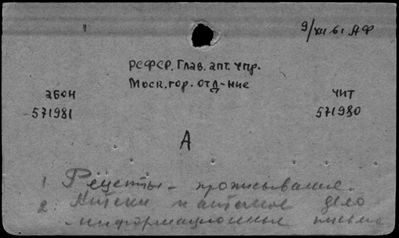 9/XII 61 АФ
РСФСР. Глав. апт. упр.
Моск. гор. отд-ние
збон
571981
чит
571980
А
1 Рецепты - прописывание.
2 Аптеки и аптечное дело
информационные письма